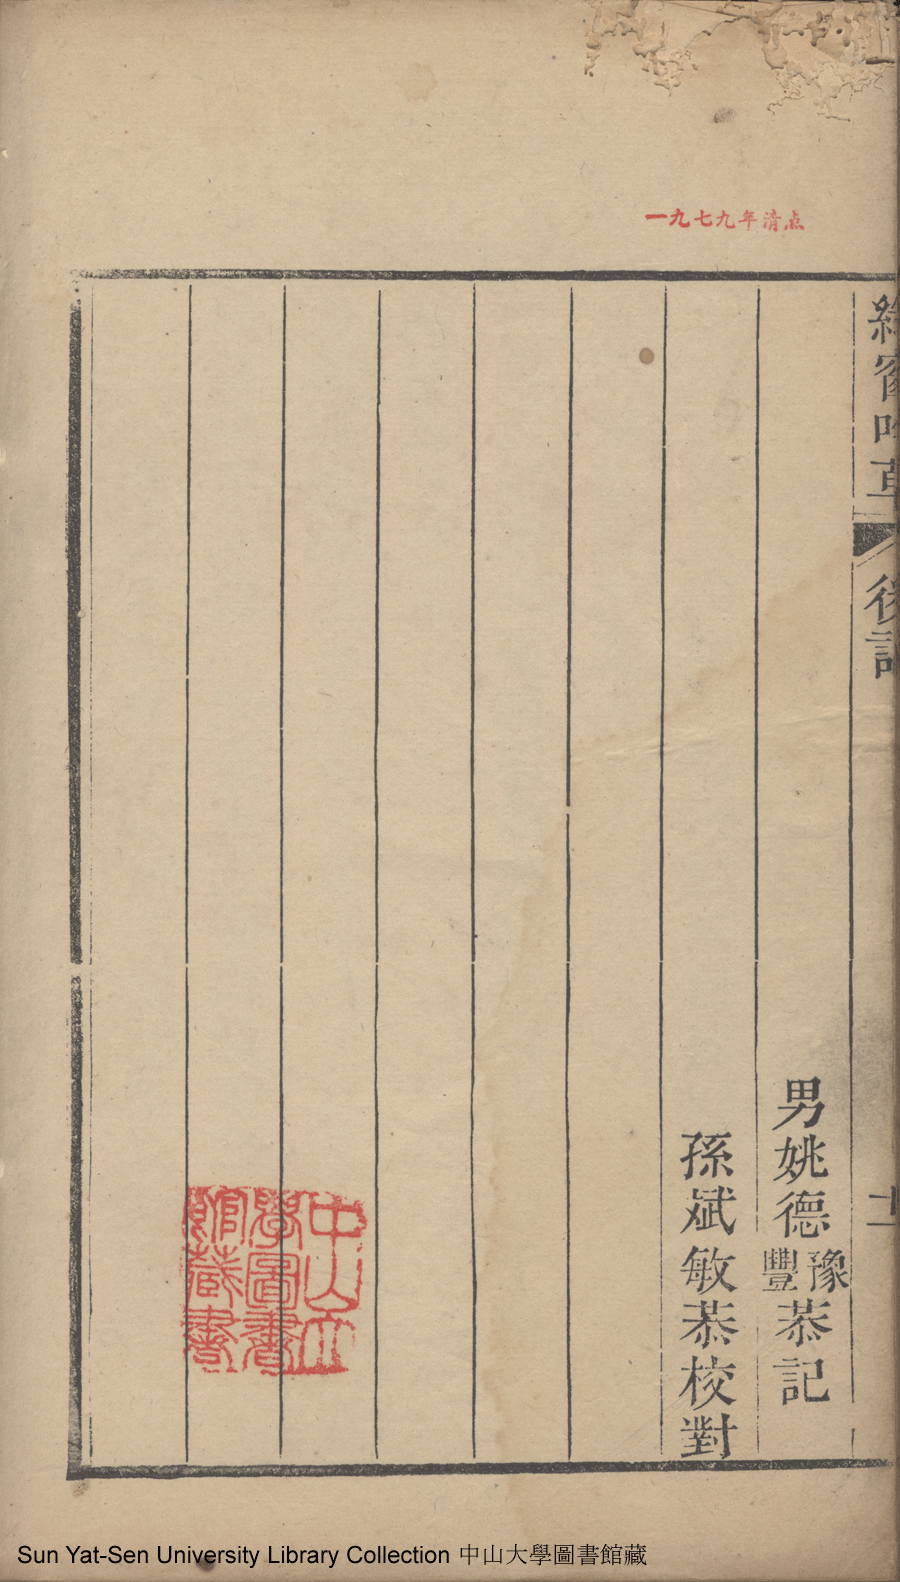 一九七九年清点
綠窗吟草
後記
十
男姚德豫豐恭記
孫斌敏恭校對
中山大
學圖書
館藏書
Sun Yat-Sen University Library Collection 中山大學圖書館藏